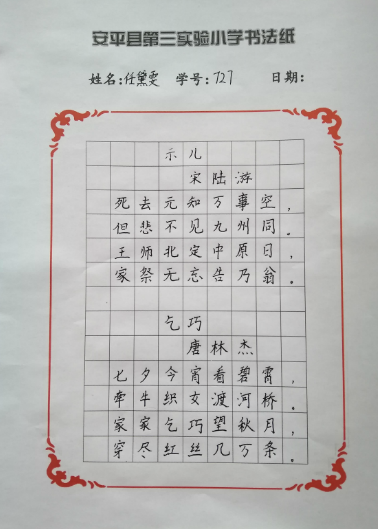 安平县第三实验小学书法纸
姓名:任黛雯 学号:727 日期:
示儿
宋陆游
死去元知万事空,
但悲不见九州同。
王师北定中原日,
家祭无忘告乃翁。
乞巧
唐林杰
七夕今宵看碧霄,
牵牛织女渡河桥。
家家乞巧望秋月,
穿尽红丝几万条。